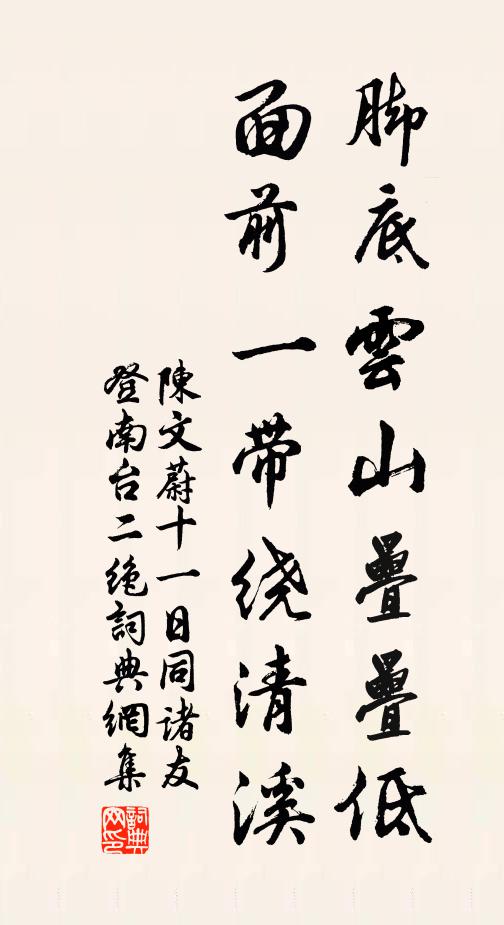 脚底雲山疊疊低
面前一带绕清溪
陳文蔚十一日同諸友
登南台二绝詞典網集
詞典网印